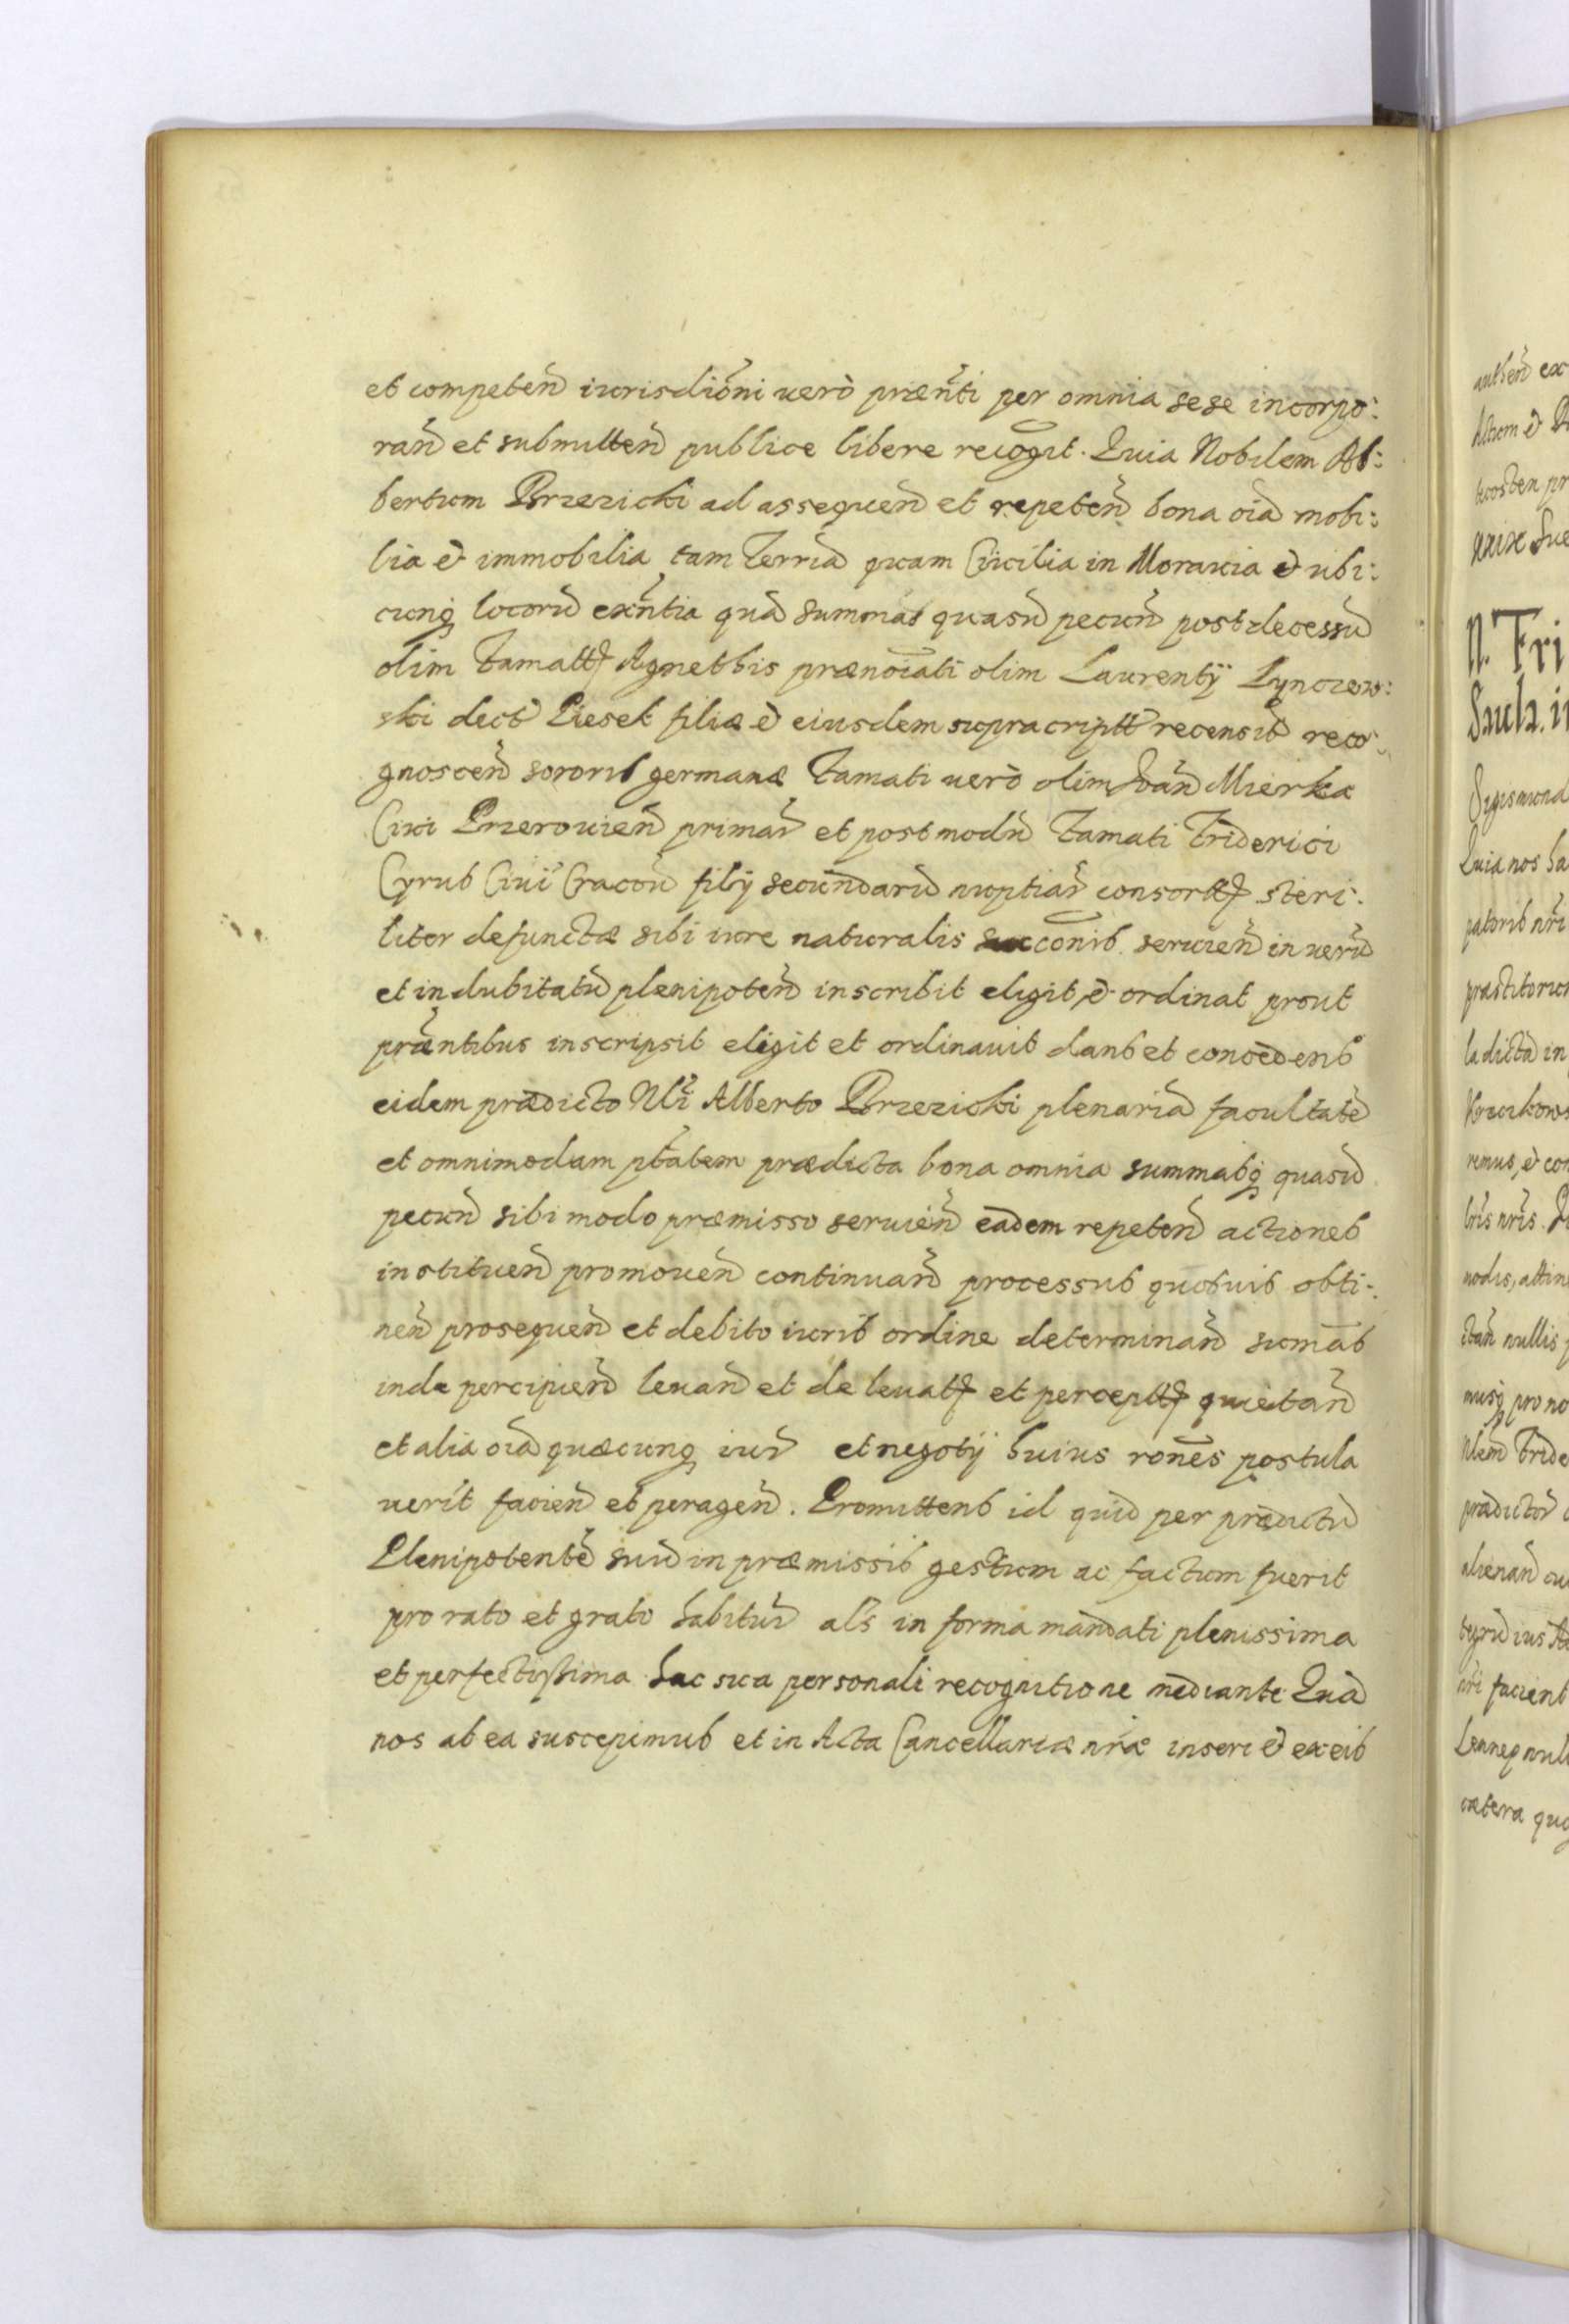 et competen̄ iurisdiōni uerò præn̄ti per omnia sese incorpo:
ran̄ et submitten̄ publice libere recōgit. Quia Nobilem Al:
bertum Brzezicki ad assequen̄ et repeten̄ bona oīa mobi:
lia et immobilia tam Terrīa quam Ciuilia in Morauia et ubi:
cunq locorū exn̄tia quā summas quasū pecun̄ post decessū
olim famatt Agnethis prænoīati olim Laurentij
ski dect Pieset filiæ et eiusdem supracriptt recensit reco:
gnoscen̄ sororis germanæ famati uerò olim Joan̄ Mierka
Ciui Przerouien̄ primar̄ et postmodū famati Friderici
Cyrus Ciui Cracoū filij secundarū nuptiar̄ consortt steri:
liter defunctæ sibi iure naturalis succ̄onis seruien̄ in uerū
et indubitatū plenipoten̄ inscribit eligit et ordinat prout
præn̄tibus inscripsit eligit et ordinauit dans et concedens
eidem prædicto Nl̄i Alberto Brzezicki plenariā facultatē
et omnimodam p̄tatem prædicta bona omnia summasq quasū
pecun̄ sibi modo præmisso seruien̄ eādem repeten̄ actiones
instituen̄ promouen̄ continuan̄ processus quosuis obti:
nen̄ prosequen̄ et debito iuris ordine determinan̄ sum̄as
inde percipien̄ leuan̄ et de leuatt et perceptt quietan̄
et alia oīa quæcunq iur̄ et negotij huius rōnes postula
uerit facien̄ et peragen̄. Promittens id quid per prædictū
Plenipotentē suū in præmissis gestum ac factum fuerit
pro rato et grato habitur̄ al̄s in forma mandati plenissima
et perfectissima hac sua personali recognitione mediante Quā
nos ab ea suscepimus et in Acta Cancellariæ nr̄æ inseri et ex eis
authen̄ ex
pr
N. Fri
Sigismund
Quia nos ha
patoris nr̄i
la dicta in
remus, et con
nr̄is
nullis
pro no
prædictor̄
alienan̄
facient
cætera